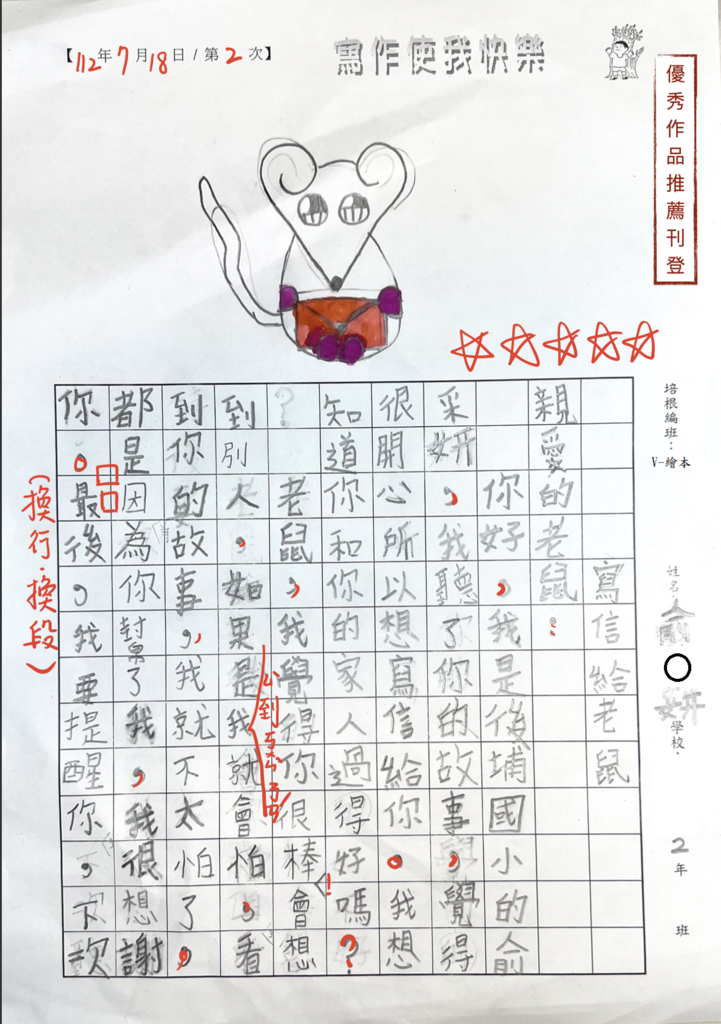 【112年7月18日/第2次】
寫作使我快樂
優秀作品推薦刊登
培根編班：
V-繪本
姓名：
學校：
2年 班
寫信給老鼠
親愛的老鼠：
你好，我是後埔國小的俞
采妍，我聽了你的故事，覺得
很開心所以想寫信給你。我想
知道你和你的家人過得好嗎？
老鼠，我覺得你很棒！會想
到別人，如果是我就會怕，看
到你的故事，我就不太怕了，
都是因為你幫了我，我很想謝
你。最後，我要提醒你，下次
(換行．換段)